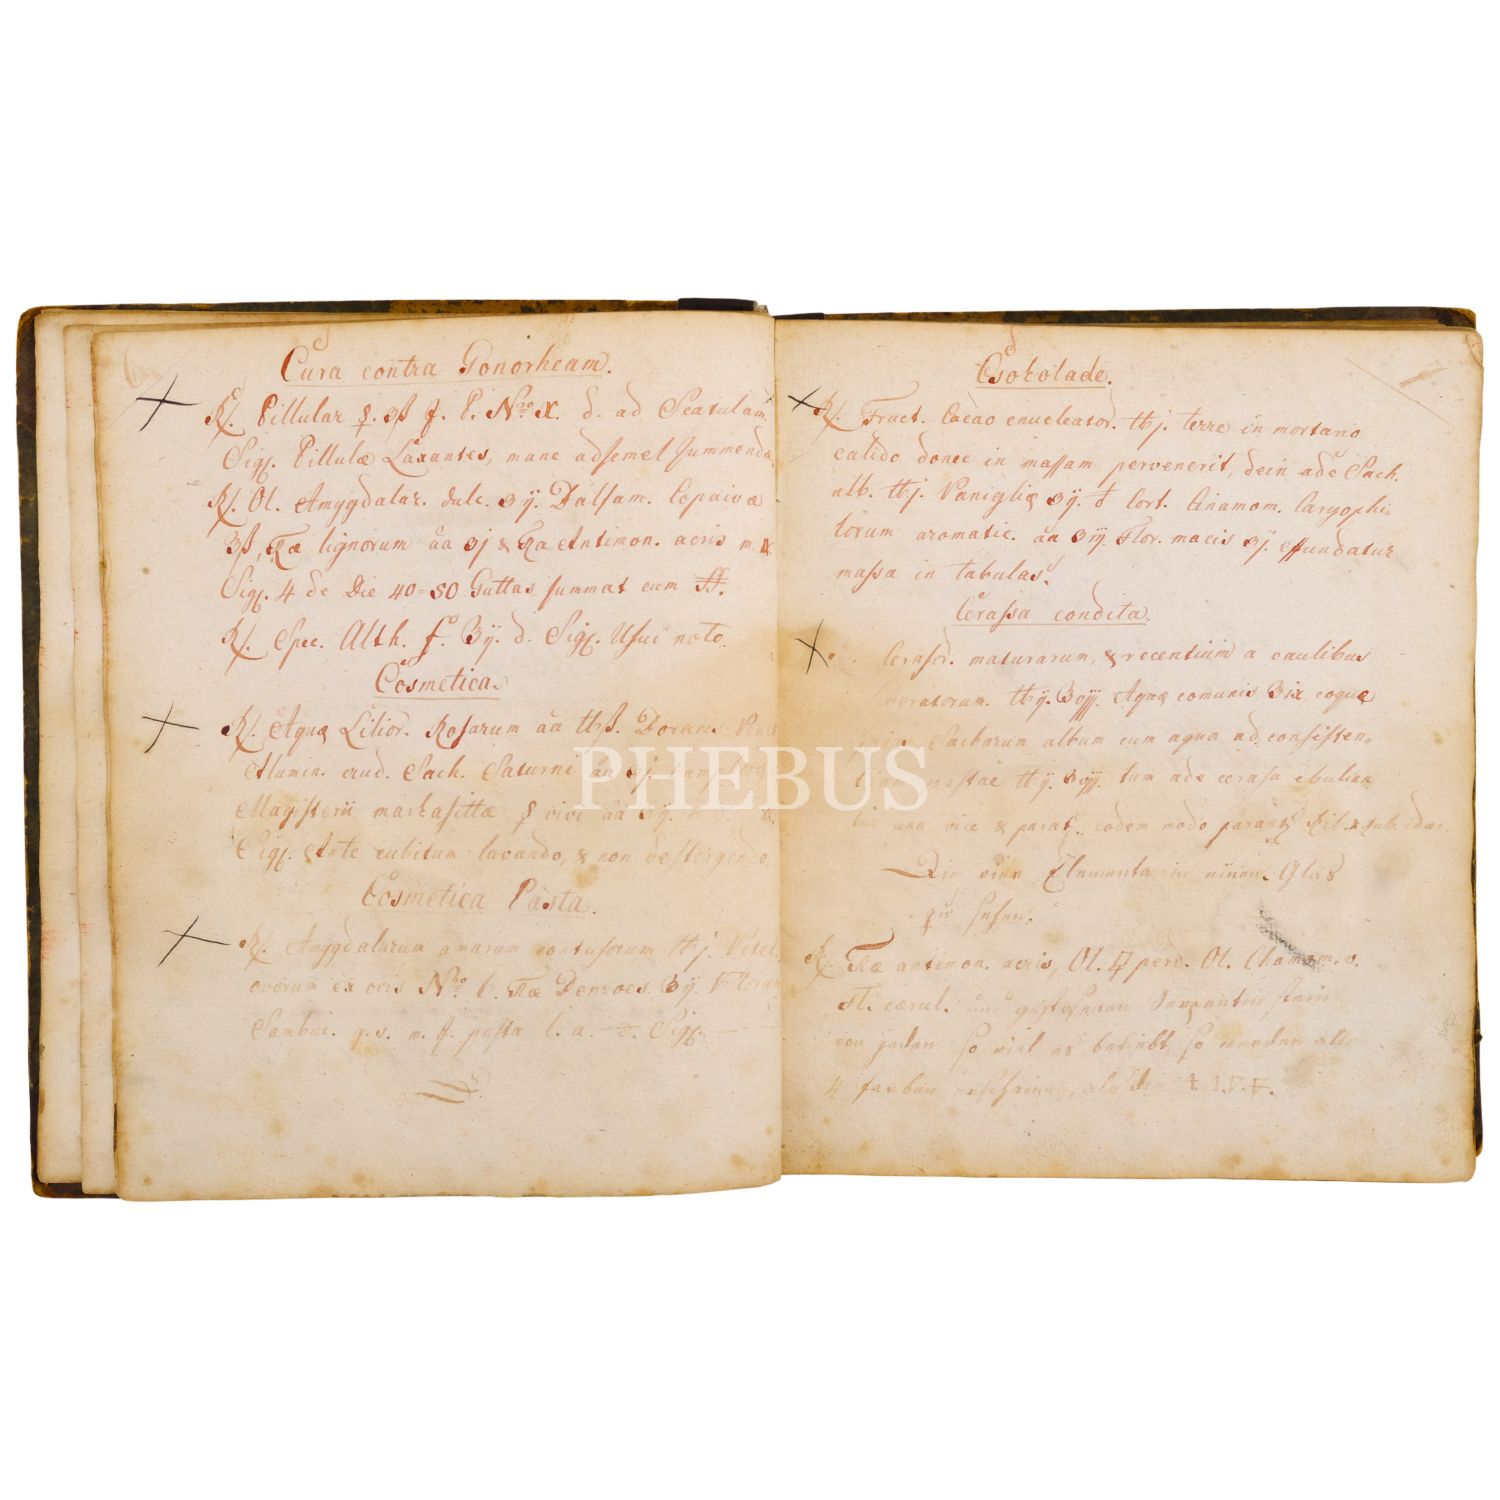 Cura contra Gonorheam.
R/. Pillular ☿. ʒß f. P. Nro X. d. ad Scatulam.
Sig. Pillulæ Laxantes, mane adsemel summendæ
R/. Ol. Amygdalar. dulc. ʒij. Balsam. Copaivæ
ʒß, Træ lignorum aa ʒj & Tra Antimon. acris m.
Sig. 4 de Die 40=50 Guttas summat cum
R/. Spec. Alth. f. ℥ij. d. Sig. Usui noto.
Cosmetica.
R/. Aquæ Lilior. Rosarum aa ℔ß. Boracis Venet
Alumin. crud. Sach. Saturni an
Magisterii markasittæ, ☿ vivi aa ʒij.
Sig. Ante cubitum lavando, & non destergendo
Cosmetica Pasta.
R/. Amygdalarum amarum contusorum ℔j. Vitel.
ovorum ex ovis Nro 6. Træ Benzoes ℥ij. Florum
Sambuc. q.s. m. f. pasta l. a. d. Sig.
Csokolade.
R/. Fruct. Cacao enucleator. ℔j. terre in mortario
calido donec in massam pervenerit, dein ade Sach.
alb. ℔j. Vanigliæ ʒij. Cort. Cinamom. Caryophi=
lorum aromatic. aa ʒij. Flor. macis ʒj. effundatur
massa in tabulas.
Cerassa condita.
Cerasor. maturarum, & recentium a caulibus
℔ij. Aquæ comunis ℥ix, coquæ
Sacharum album cum aqua ad consisten=
℔ij. tum ade cerasa ebulian
una vice & parat. eodem modo parantur
Die vier Elementa in einem Glas
zu sehen.
R/. Træ antimon. acris, Ol. perd. Ol. Chamom. v.
Fl. cærul. und
von jeden so viel es beliebt, so werden alle
4 farben erscheinen, als die
PHEBUS